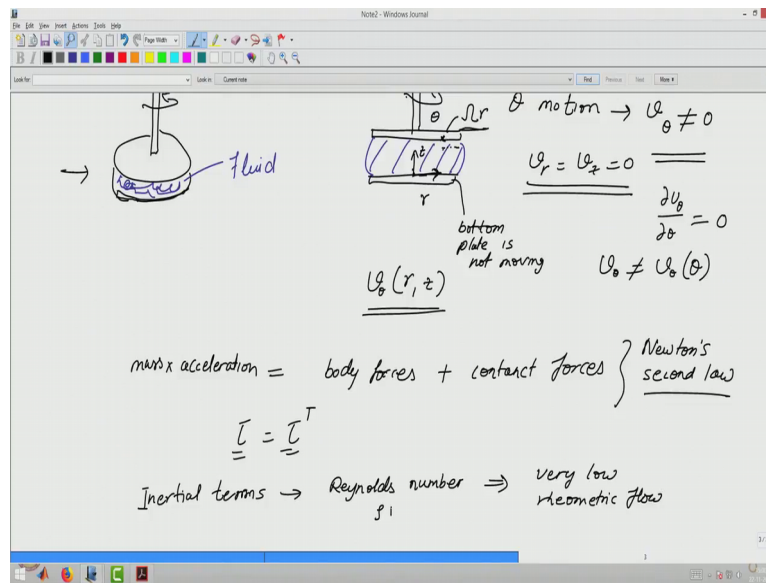 Note2 - Windows Journal
File Edit View Insert Actions Tools Help
Page Width
B I
Look for: Look in: Current note Find Previous Next More
θ
Ωr
θ motion → v_θ ≠ 0
→ Fluid
z
r
v_r = v_z = 0
bottom
plate is
not moving
∂v_θ/∂θ = 0
v_θ (r, z)
v_θ ≠ v_θ (θ)
mass x acceleration = body forces + contact forces } Newton's
second law
τ = τ^T
Inertial terms → Reynolds number ⇒ very low
rheometric flow
ρ
1